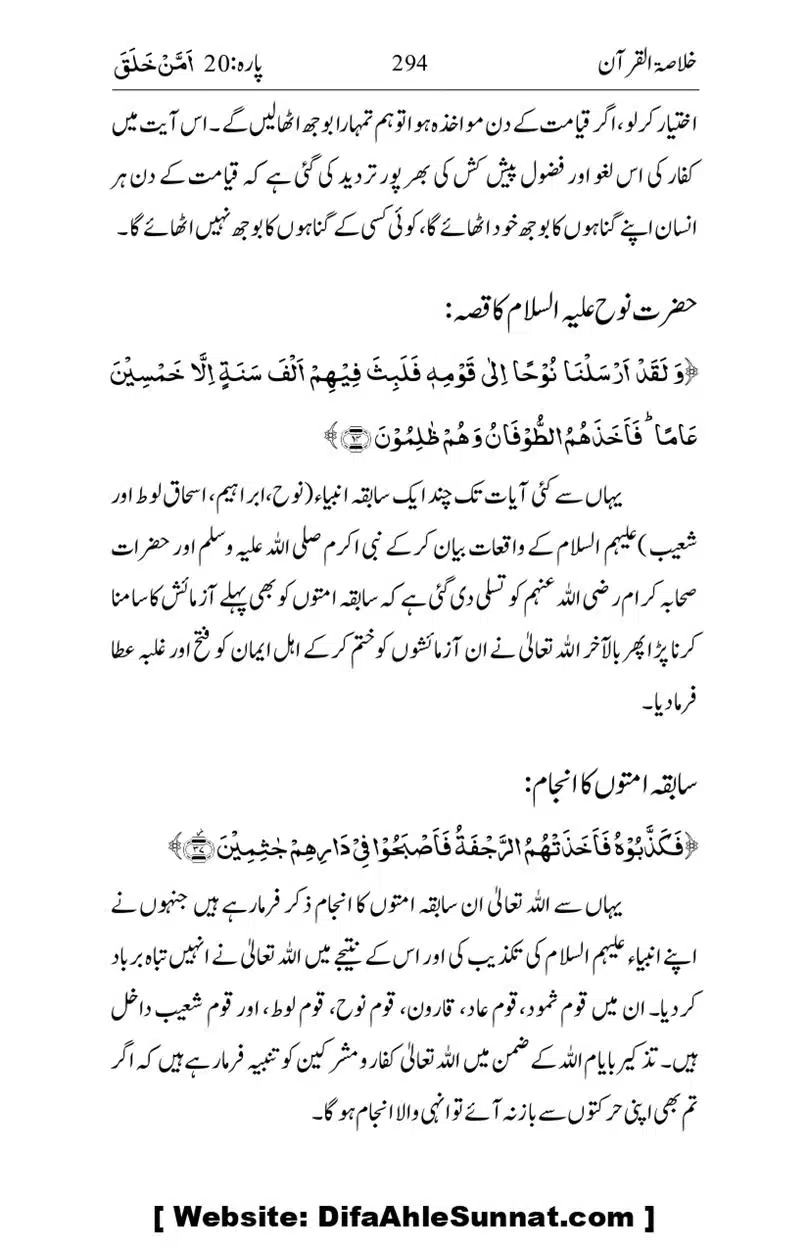 خلاصۃ القرآن 294 پارہ:20 اَمَّنْ خَلَقَ
اختیار کر لو، اگر قیامت کے دن مواخذہ ہوا تو ہم تمہارا بوجھ اٹھا لیں گے۔ اس آیت میں
کفار کی اس لغو اور فضول پیش کش کی بھر پور تردید کی گئی ہے کہ قیامت کے دن ہر
انسان اپنے گناہوں کا بوجھ خود اٹھائے گا، کوئی کسی کے گناہوں کا بوجھ نہیں اٹھائے گا۔
حضرت نوح علیہ السلام کا قصہ:
﴿وَ لَقَدْ اَرْسَلْنَا نُوْحًا اِلٰى قَوْمِهٖ فَلَبِثَ فِيْهِمْ اَلْفَ سَنَةٍ اِلَّا خَمْسِيْنَ
عَامًا ؕ فَاَخَذَهُمُ الطُّوْفَانُ وَ هُمْ ظٰلِمُوْنَ ﴿۱۴﴾﴾
یہاں سے کئی آیات تک چند ایک سابقہ انبیاء (نوح، ابراہیم، اسحاق لوط اور
شعیب) علیہم السلام کے واقعات بیان کر کے نبی اکرم صلی اللہ علیہ وسلم اور حضرات
صحابہ کرام رضی اللہ عنہم کو تسلی دی گئی ہے کہ سابقہ امتوں کو بھی پہلے آزمائش کا سامنا
کرنا پڑا پھر بالآخر اللہ تعالیٰ نے ان آزمائشوں کو ختم کر کے اہل ایمان کو فتح اور غلبہ عطا
فرما دیا۔
سابقہ امتوں کا انجام:
﴿فَكَذَّبُوْهُ فَاَخَذَتْهُمُ الرَّجْفَةُ فَاَصْبَحُوْا فِيْ دَارِهِمْ جٰثِمِيْنَ ﴿۳۷﴾﴾
یہاں سے اللہ تعالیٰ ان سابقہ امتوں کا انجام ذکر فرما رہے ہیں جنہوں نے
اپنے انبیاء علیہم السلام کی تکذیب کی اور اس کے نتیجے میں اللہ تعالیٰ نے انہیں تباہ برباد
کر دیا۔ ان میں قوم ثمود، قوم عاد، قارون، قوم نوح، قوم لوط، اور قوم شعیب داخل
ہیں۔ تذکیر بایام اللہ کے ضمن میں اللہ تعالیٰ کفار و مشرکین کو تنبیہ فرما رہے ہیں کہ اگر
تم بھی اپنی حرکتوں سے باز نہ آئے تو انہی والا انجام ہو گا۔
[ Website: DifaAhleSunnat.com ]